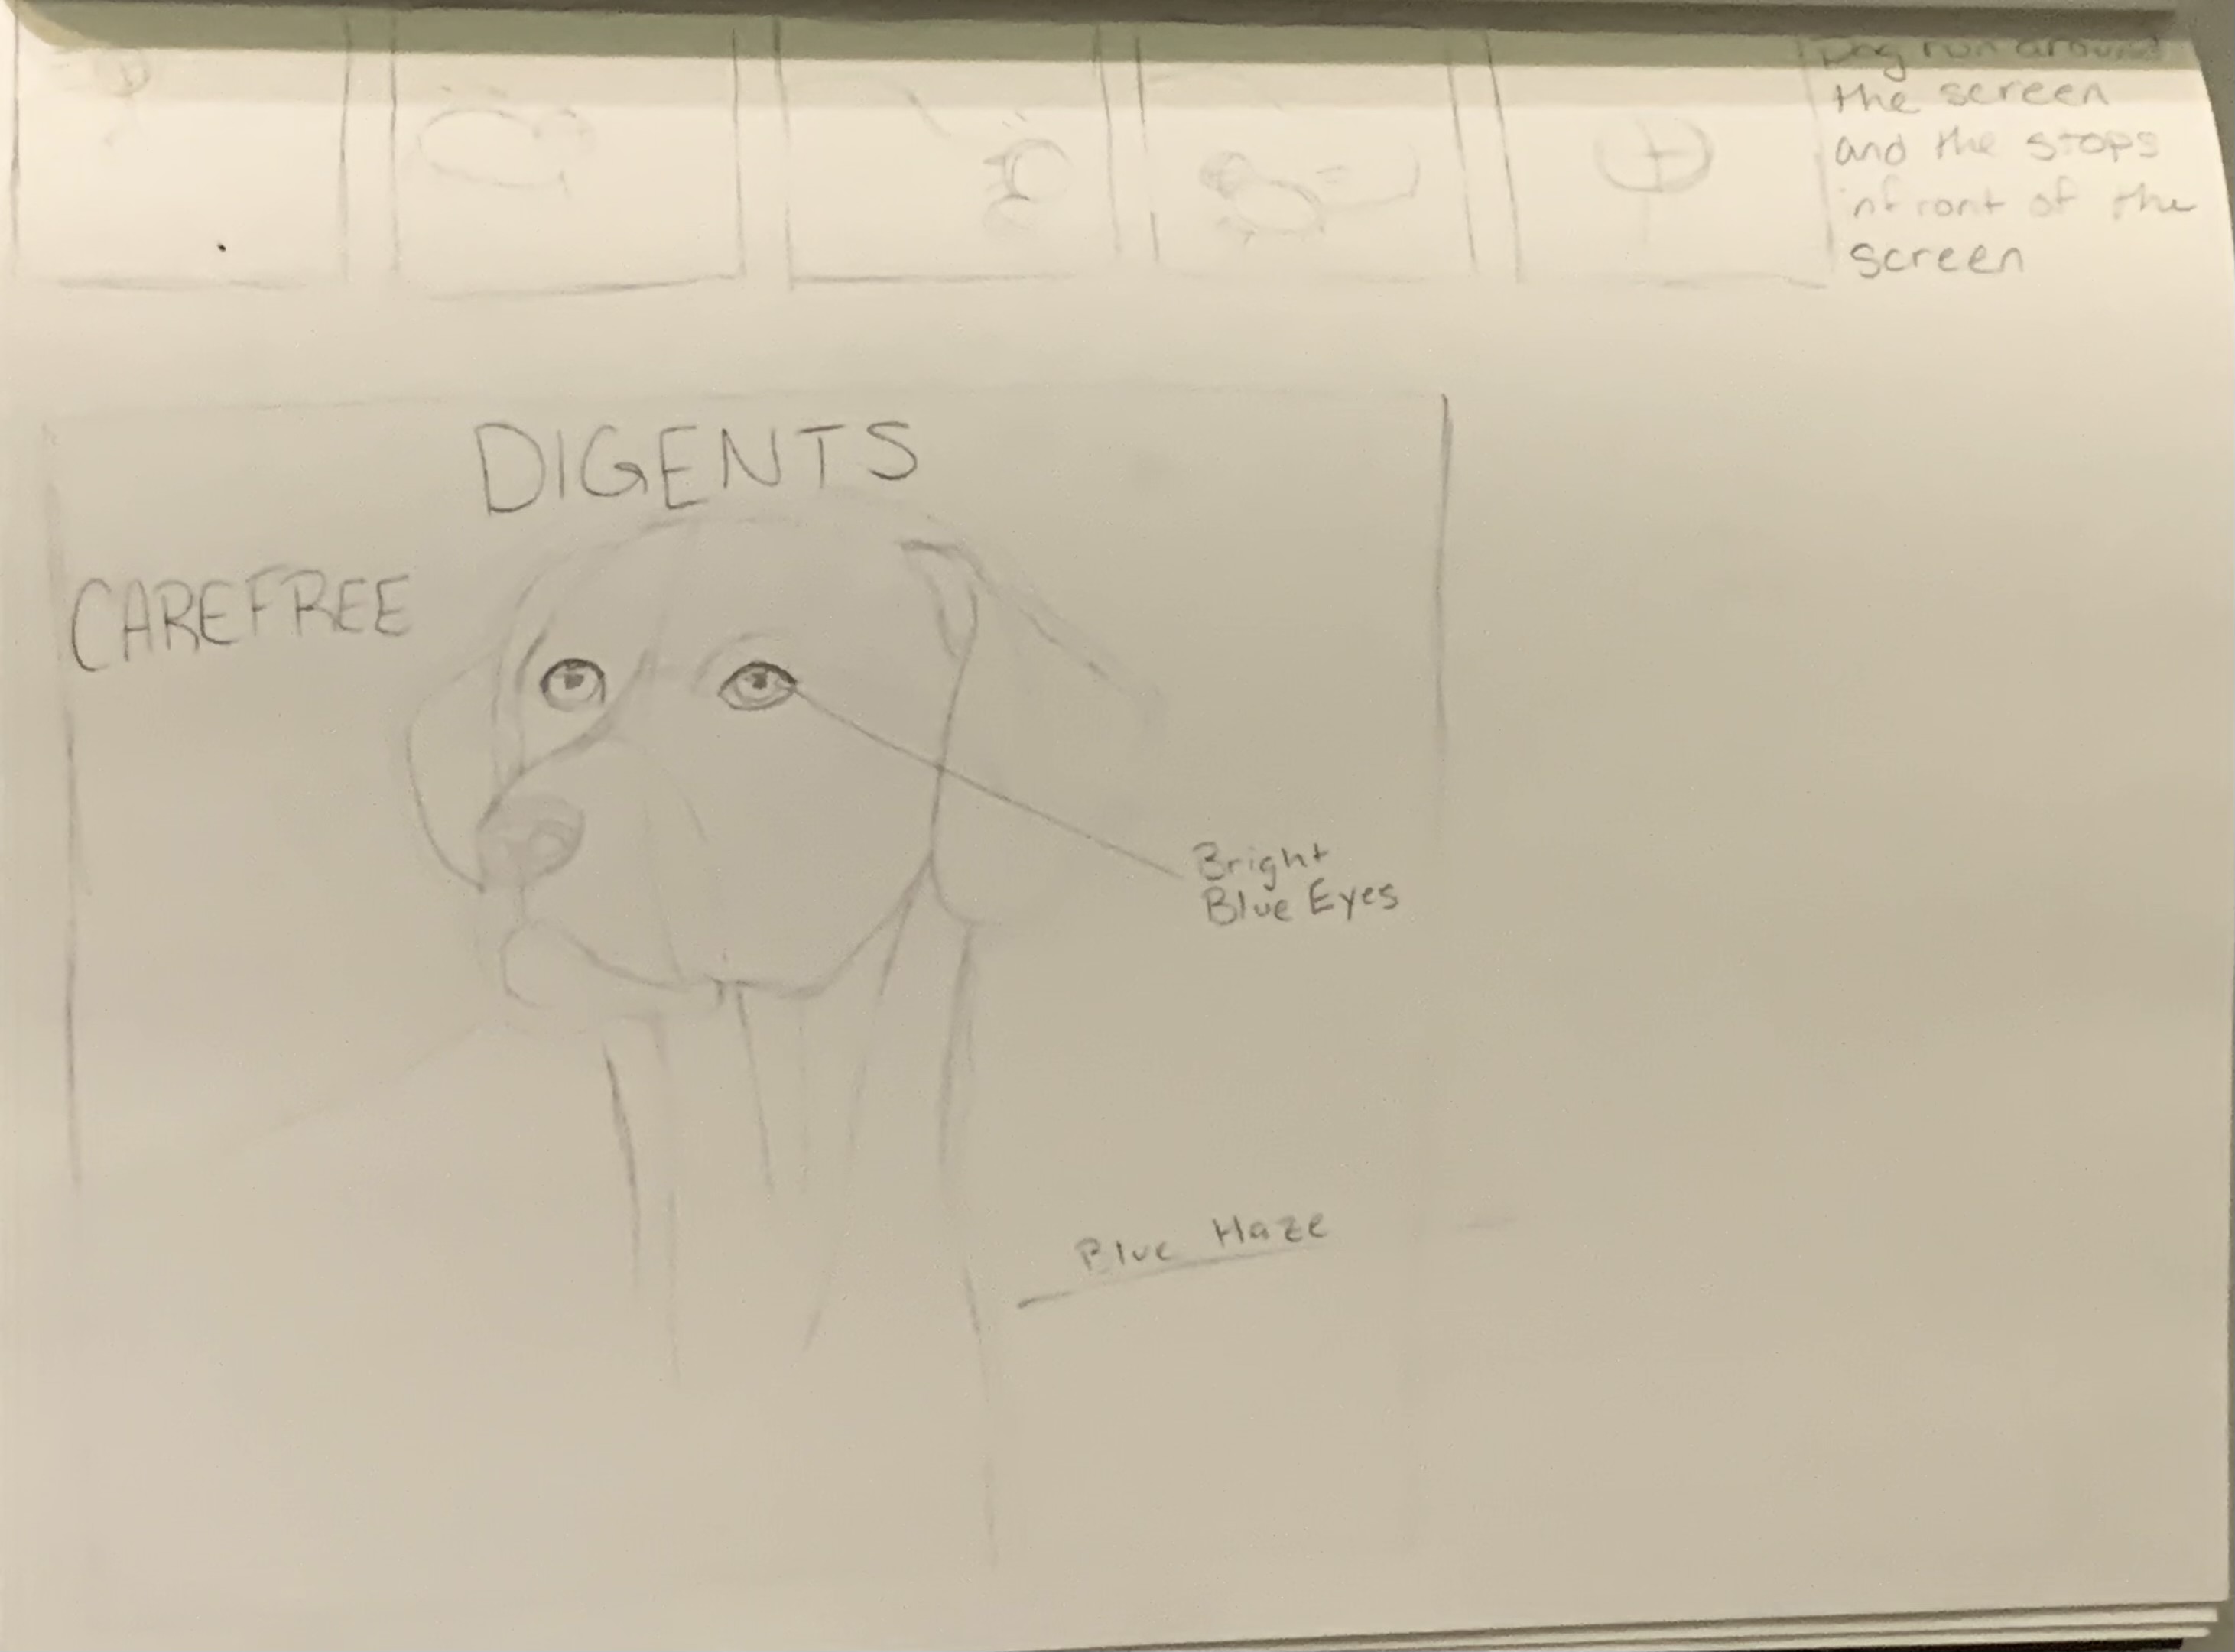 Dog run around
the screen
and the stops
infront of the
screen
DIGENTS
CAREFREE
Bright
Blue Eyes
Blue Haze